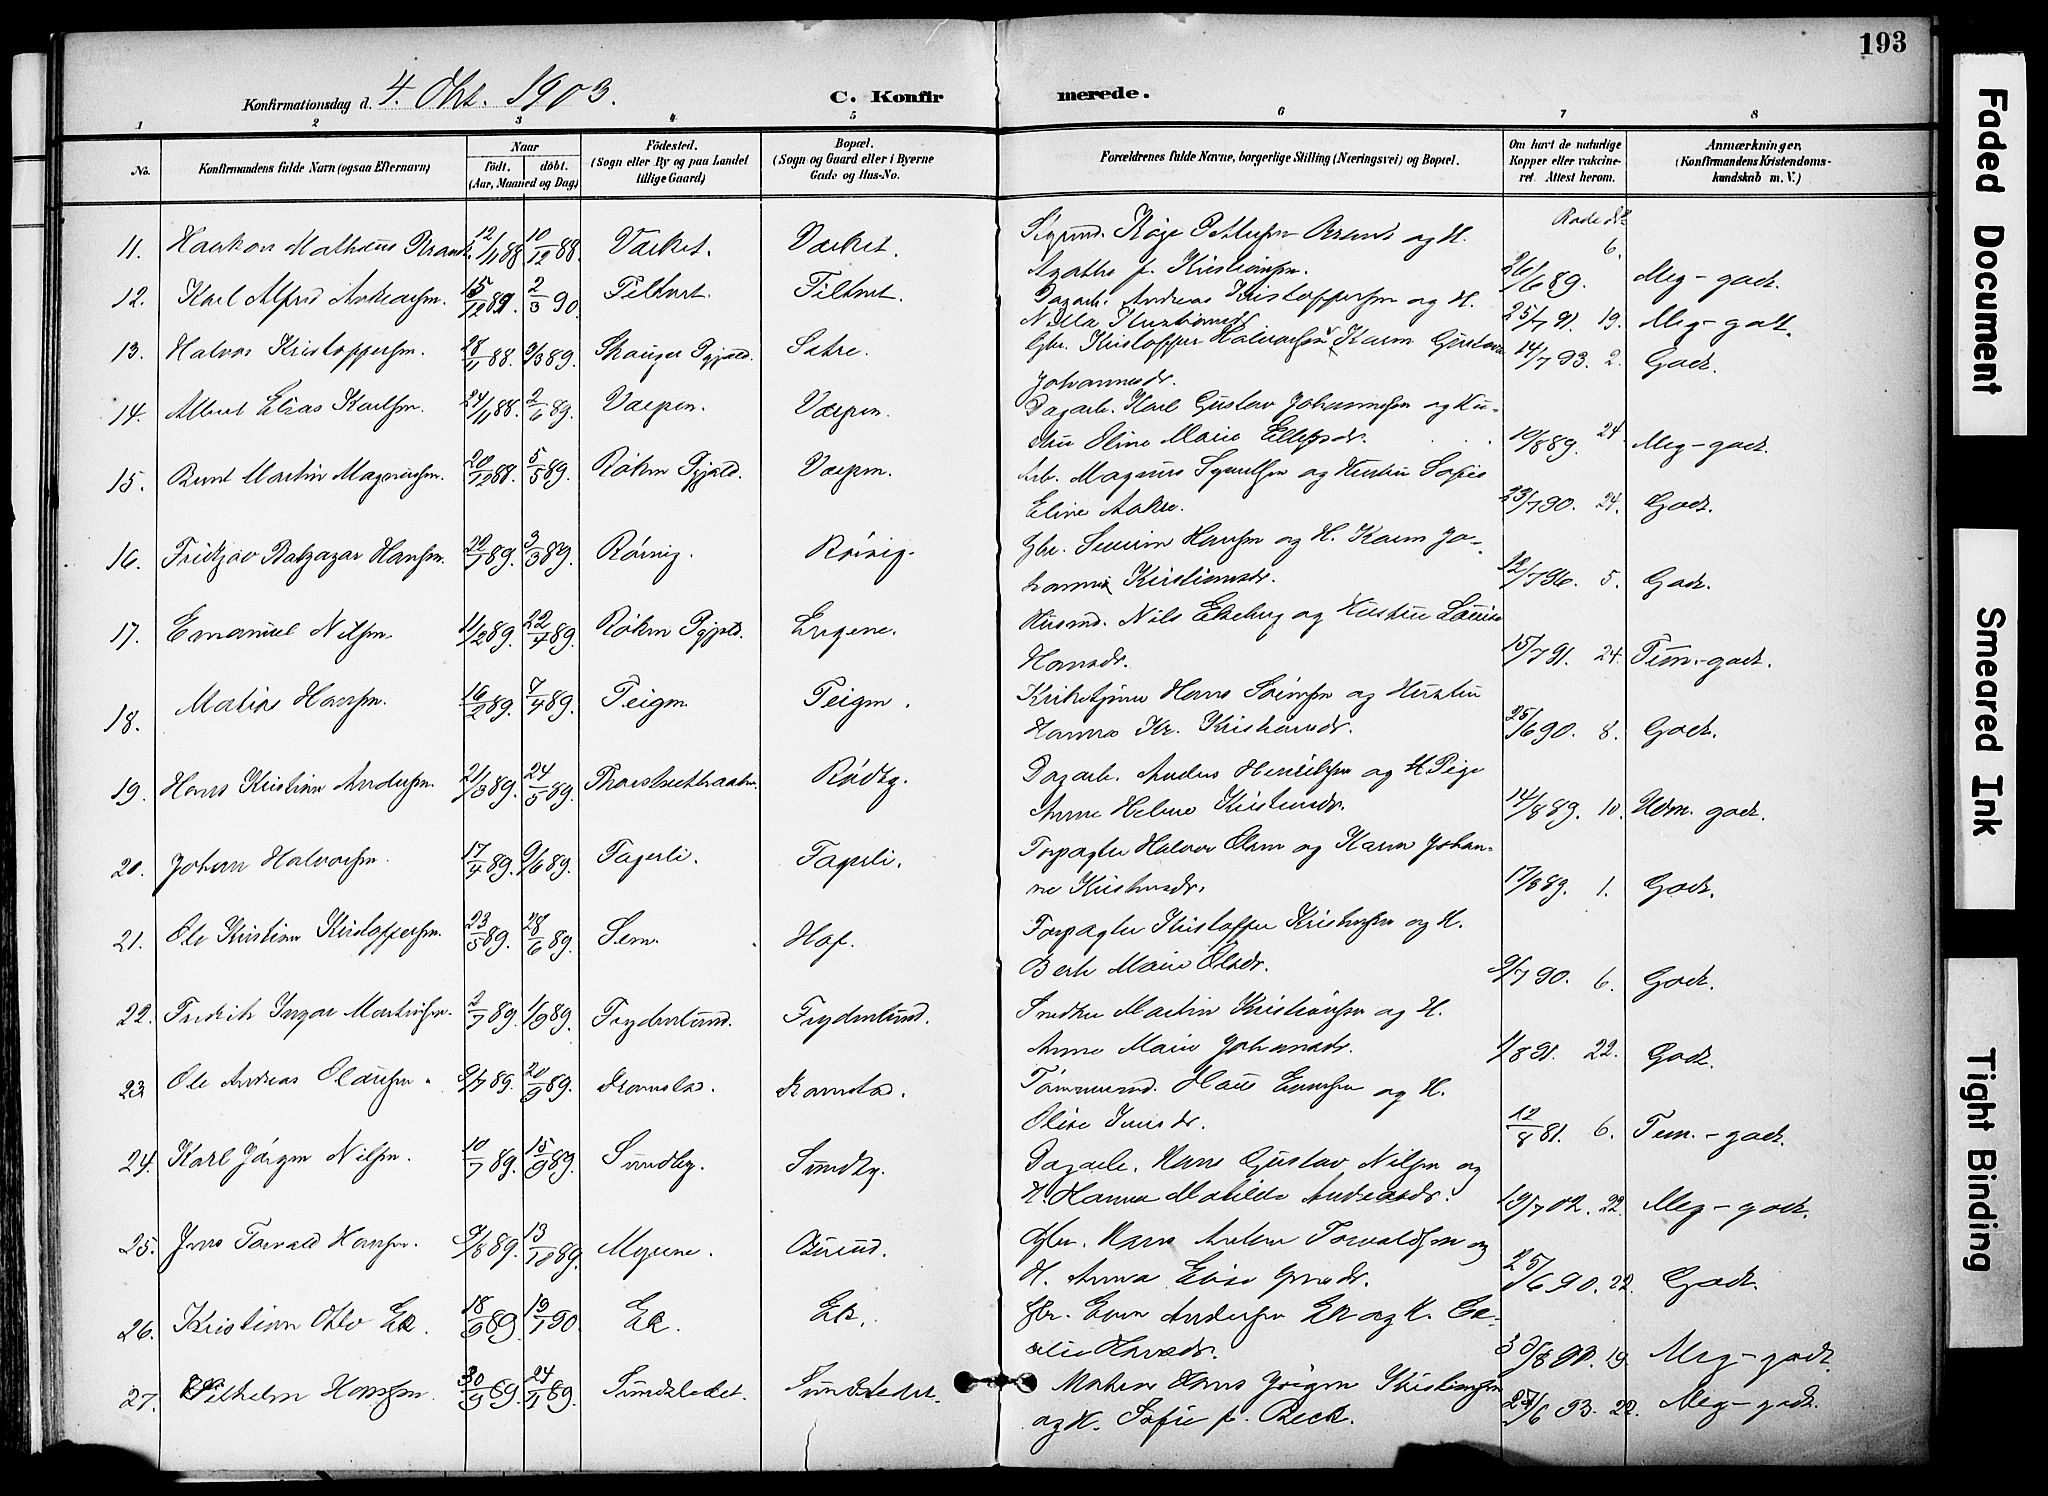 193
Konfirmationsdag d. 4. Okt. 1903. C. Konfirmerede.
1 2 3 4 5 6 7 8
No. Konfirmandens fulde Navn (ogsaa Efternavn) Naar født. døbt. (Aar, Maaned og Dag) Födested. (Sogn eller By og paa Landet tillige Gaard) Bopæl. (Sogn og Gaard eller i Byerne Gade og Hus-No. Forældrenes fulde Navne, borgerlige Stilling (Næringsvei) og Bopæl. Om havt de naturlige Kopper eller vakcineret. Attest herom. Anmærkninger. (Konfirmandens Kristendomskundskab m. V.)
11. Haakon Mathæus Brandt. 12/11 88 10/12 88. Værket. Værket. Petersen Brandt og H.
Agathe f. Kristiansen. 26/6 89. 6. Meg-godt.
12. Karl Alfred Andreassen. 15/12 89. 2/3 90. Filtvet. Filtvet. Dagarb. Andreas Kristoffersen og H.
25/7 91. 19. Meg-godt.
13. Halvor Kristoffersen. 28/11 88. 3/3 89. Sætre. Gbr. Kristoffer Halvorsen Karen Gustava
Johannesdr. 14/7 93. 2. Godt.
14. Albert Elias Karlsen. 24/11 88. 2/6 89. Værpen. Værpen. Dagarb. Karl Gustav Johannesen og Hu-
stru Oline Marie Ellefsdr. 19/8 89. 24. Meg-godt.
15. Bernt Martin Magnussen. 20/12 88. 5/5 89. Røken Pgjæld. Værpen. Arb. Magnus Syvertsen og Hustru Sofie
Eline Aakre. 23/7 90. 24. Godt.
16. Fridtjov Baltzazar Hansen. 20/1 89. 3/3 89. Rørvig. Rørvig. Gbr. Severin Hansen og H. Karen Jo-
hanne Kristiansdr. 12/7 96. 5. Godt.
17. Emanuel Nilsen. 11/2 89. 22/4 89. Røken Pgjæld. Engene. Husmd. Nils Ekeberg og Hustru Lovise
Hansdr. 15/7 91. 24. Tem.-godt.
18. Martin Hansen. 16/2 89. 7/4 89. Teigen. Teigen. Kirketjener Hans Sørensen og Hustru
Hanna Kr. Kristiansdr. 25/6 90. 8. Godt.
19. Hans Kristian Andersen. 21/3 89. 24/5 89. Rødby. Dagarb. Anders Henriksen og H Pige
Anne Helene Kristensdr. 14/8 89. 10. Udm. godt.
20. Johan Halvorsen. 17/4 89. 9/6 89. Fagerli. Fagerli. Forpagter Halvor Olsen og Karen Johan-
ne Kristensdr. 17/8 89. 1. Godt.
21. Ole Kristian Kristoffersen. 23/5 89. 28/6 89. Sem. Hof. Forpagter Kristoffer Kristensen og H.
Berte Marie Olsdr. 9/7 90. 6. Godt.
22. Fredrik Ingvar Martinsen. 2/7 89. 1/9 89. Frydenlund. Frydenlund. Snedker Martin Kristiansen og H.
Anne Marie Johansdr. 1/8 91. 22. Godt.
23 Ole Andreas Olausen. 9/7 89. 20/9 89. Ramstad. Tømmermd. Olaus Evensen og H.
12/8 81. 6. Tem.-godt.
24. Karl Jørgen Nilsen. 10/7 89. 15/9 89. Sundby. Sundby. Dagarb. Hans Gustav Nilsen og
H. Hanna Matilde Andreasdr. 19/7 02. 22. Meg-godt.
25. Jens Torvald Hansen. 9/8 89. 13/10 89. Myrene. Burud. Gbr. Hans Anton Torvaldsen og
H. Anna Elise Jensdr. 25/6 90. 22. Godt.
26. Kristian Otto Ek. 18/9 89. 19/1 90. Ek. Ek. Gbr. Even Andersen Ek og H. Ce-
cilie Hansdr. 30/8 90. 19. Meg-godt.
27. Vilhelm Hansen. 30/9 89. 24/11 89. Sundsledet. Sundsledet. Matros Hans Jørgen Kristiansen
og H. Sofie f. Beck. 25/6 93. 22. Meg-godt.
Faded Document
Smeared Ink
Tight Binding